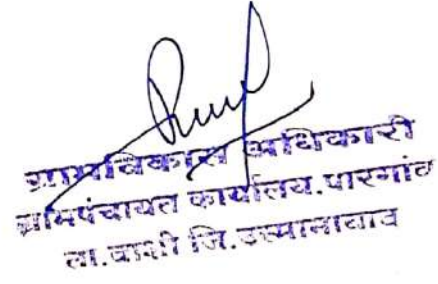 ग्रामविकास अधिकारी
ग्रामपंचायत कार्यालय.पारगांव
ता.वाशी जि.उस्मानाबाद